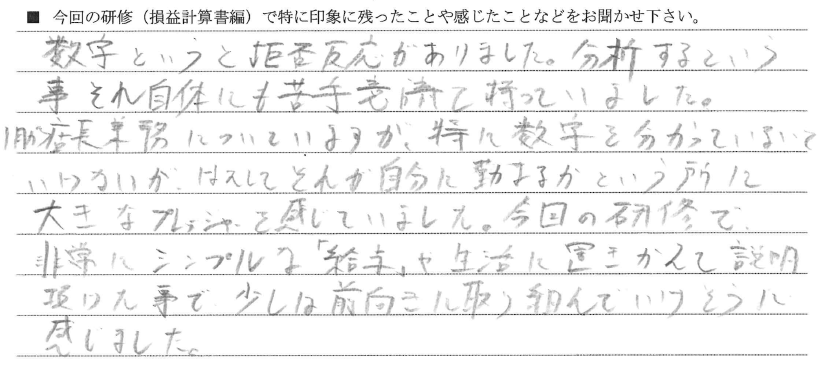 ■ 今回の研修（損益計算書編）で特に印象に残ったことや感じたことなどをお聞かせ下さい。
数字というと拒否反応がありました。分析するという
事それ自体にも苦手意識を持っていました。
店長業務についていますが、特に数字を分かっていないと
いけないが、はたしてそれが自分に勤まるかという所に
大きなプレッシャーを感じていました。今回の研修で、
非常にシンプルな「給与」や生活に置きかえて説明
頂けた事で、少しは前向きに取り組んでいけそうに
感じました。